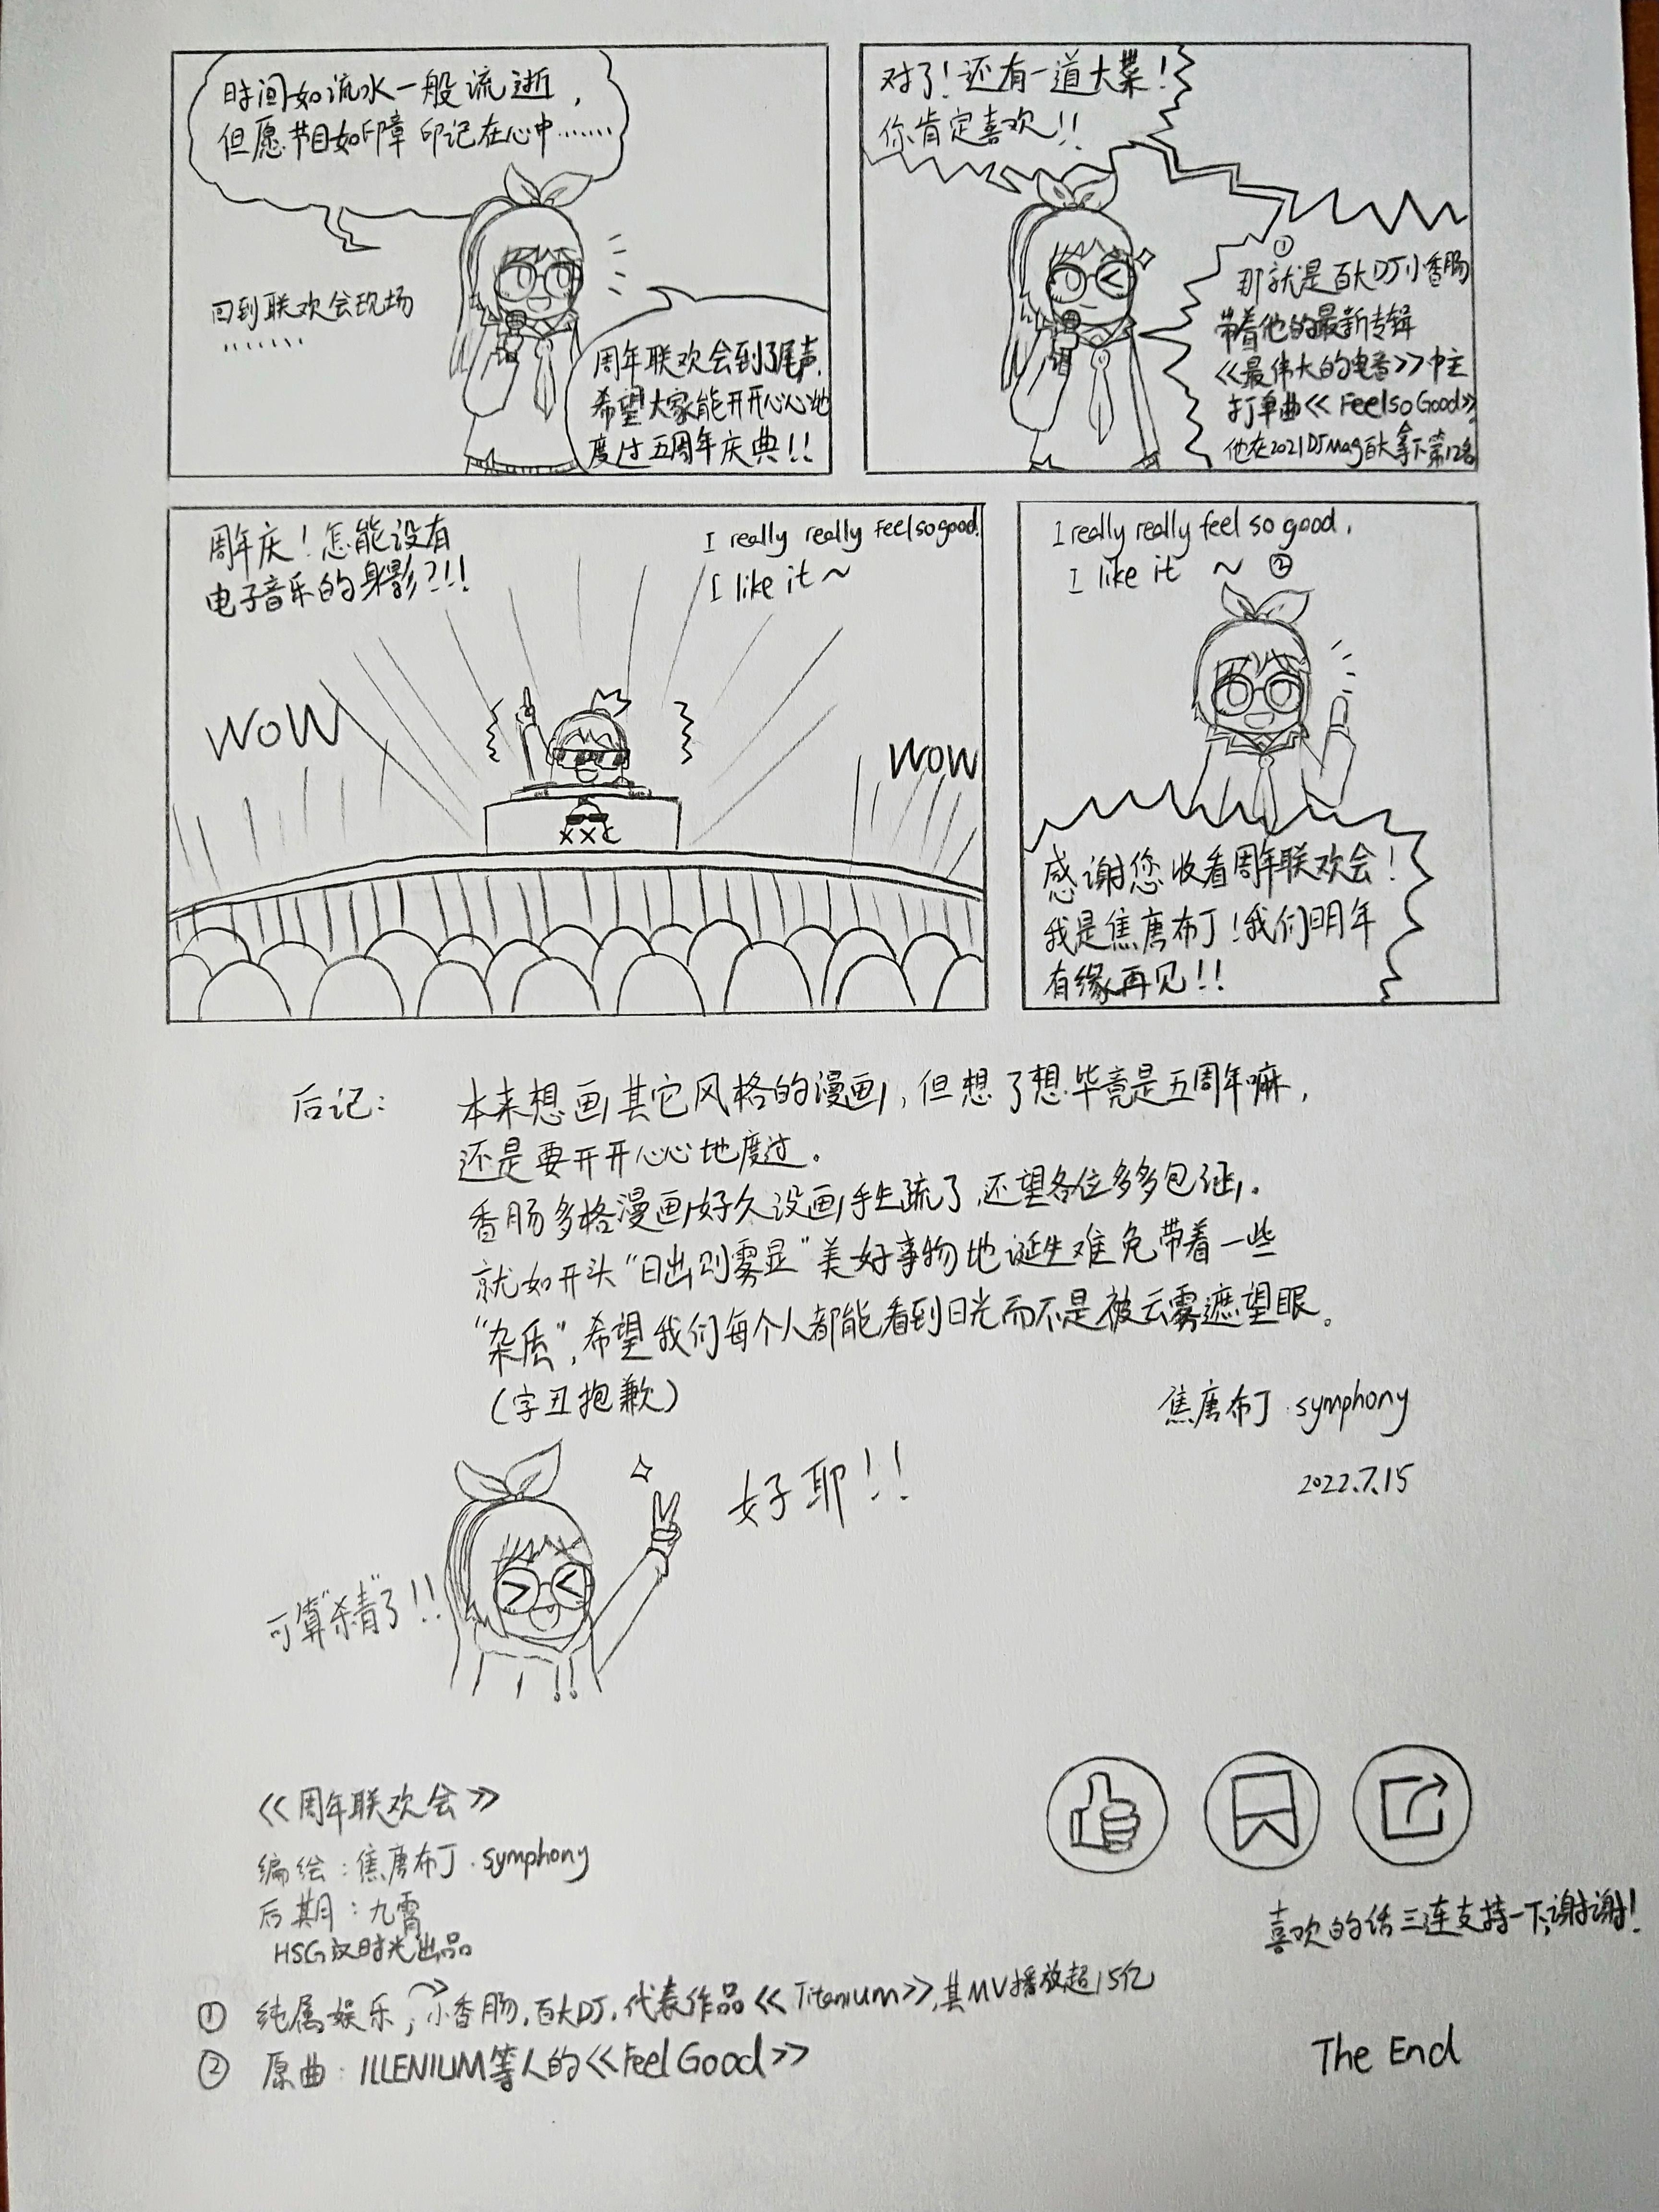 时间如流水一般流逝，
但愿节目如印章 印记在心中……
回到联欢会现场
………
周年联欢会到了尾声.
希望大家能开开心心地
度过五周年庆典!!
对了！还有一道大菜！
你肯定喜欢!!
①
那就是百大DJ小香肠
带着他的最新专辑
<<最伟大的电音>>中主
打单曲<< Feel so Good>>
他在2021DJ Mag百大拿下第12名
周年庆！怎能没有
电子音乐的身影?!!
I really really Feel so good.
I like it ~
WOW
WOW
XXC
I really really feel so good.
I like it ~ ②
感谢您收看周年联欢会！
我是焦唐布丁！我们明年
有缘再见!!
后记： 本来想画其它风格的漫画，但想了想毕竟是五周年嘛，
还是要开开心心地度过。
香肠多格漫画好久没画手生疏了，还望各位多多包涵。
就如开头“日出则雾显”美好事物地诞生难免带着一些
“杂质”，希望我们每个人都能看到日光而不是被云雾遮望眼。
(字丑抱歉)
焦唐布丁.symphony
2022.7.15
好耶!!
可算“杀青”了!!
<<周年联欢会>>
编绘：焦唐布丁.symphony
后期：九霄
HSG汉时光出品
喜欢的话三连支持一下,谢谢!
① 纯属娱乐，小香肠，百大DJ，代表作品<< Titenium>>，其MV播放超15亿
② 原曲：ILLENIUM等人的<<Feel Good>>
The End